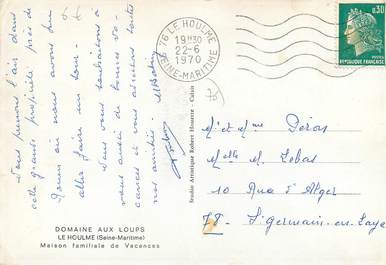 Nous prenons l'air dans
cette grande propriété près de
Rouen où nous avons pu
aller faire un tour.
Nous vous souhaitons à
vous aussi de bonnes va-
cances et vous adressons toutes
nos amitiés.
DOMAINE AUX LOUPS
LE HOULME (Seine-Maritime)
Maison familiale de Vacances
Studio Artistique Robert Housette - Calais
76 LE HOULME
19H30
22-6
1970
SEINE-MARITIME
0,30
Mr et Mme Péras
Melle M. Lebas
10 Rue d'Alger
78 - St Germain-en-Laye